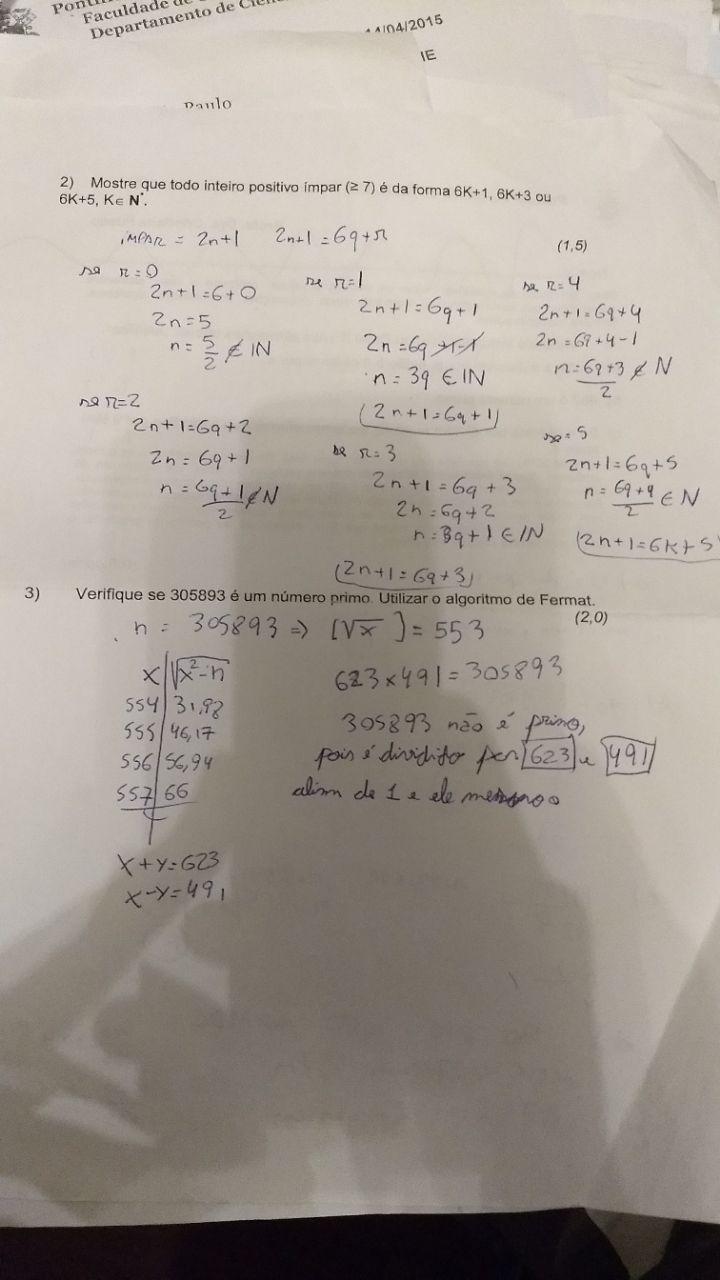 Faculdade de
Departamento de
14/04/2015
IE
Paulo
2) Mostre que todo inteiro positivo ímpar (≥ 7) é da forma 6K+1, 6K+3 ou
6K+5, K∈ N*.
(1,5)
iMPAR = 2n+1 2n+1 = 6q+r
se r=0
2n+1=6+0
2n=5
n= 5/2 ∉ IN
se r=1
2n+1=6q+1
2n=6q +1-1
n=3q ∈ IN
(2n+1=6q+1)
se r=4
2n+1=6q+4
2n=6q+4-1
n=6q+3/2 ∉ N
se r=2
2n+1=6q+2
2n=6q+1
n=6q+1/2 ∉ N
se r=3
2n+1=6q+3
2n=6q+2
n=3q+1 ∈ IN
(2n+1=6q+3)
se=5
2n+1=6q+5
n=6q+4/2 ∈ N
(2n+1=6K+5
3) Verifique se 305893 é um número primo. Utilizar o algoritmo de Fermat.
(2,0)
n = 305893 => [√x] = 553
x √x²-n
554 31,98
555 46,17
556 56,94
557 66
x+y=623
x-y=491
623×491=305893
305893 não é primo,
pois é dividido por 623 e 491
além de 1 e ele mesmo